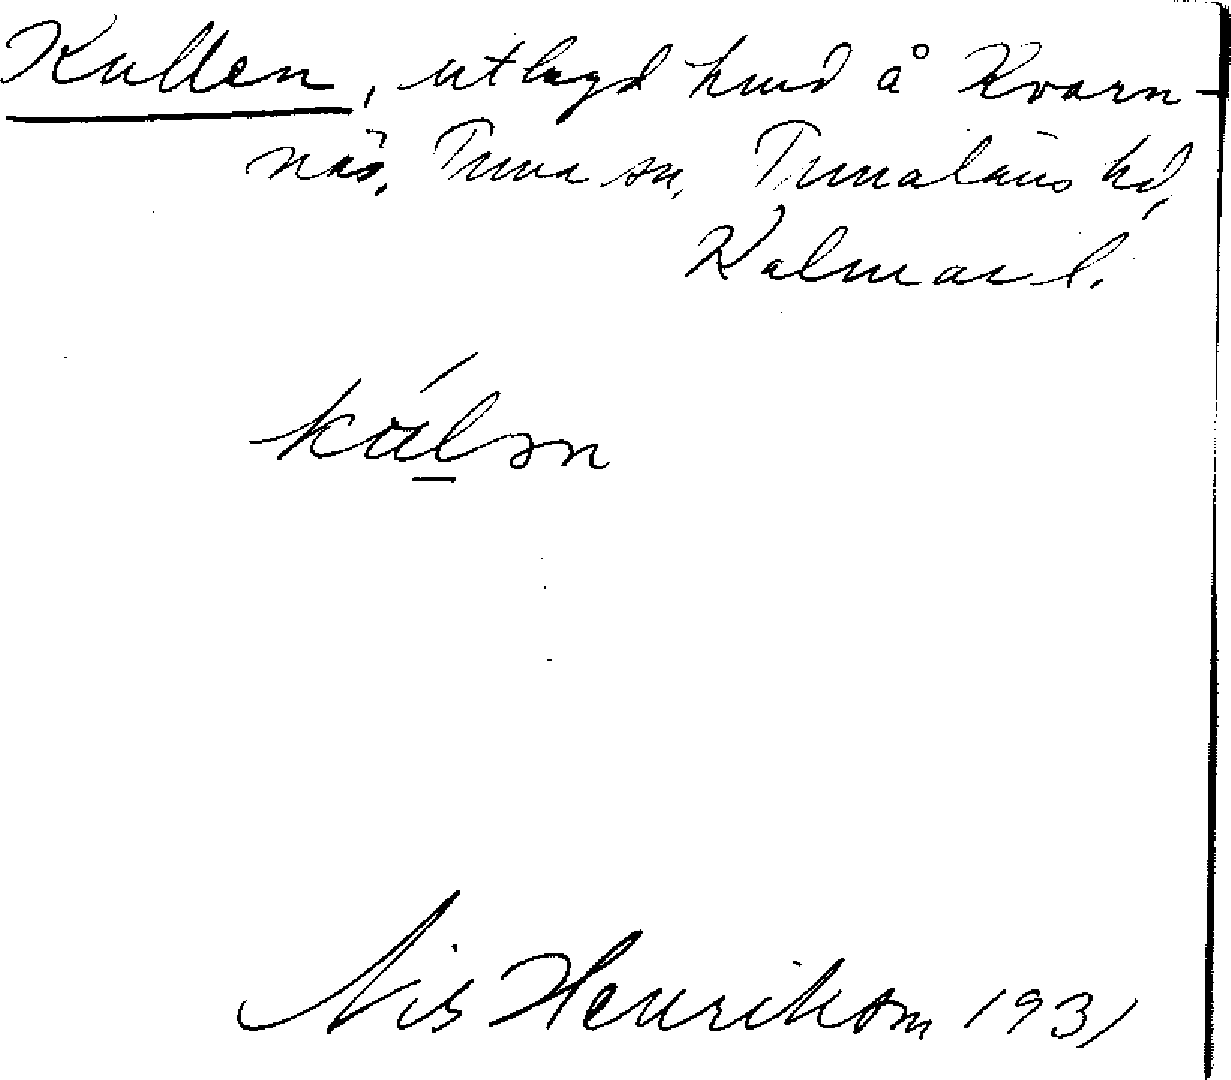 Kullen, utlagd hmd å Kvarn-
näs, Tuna sn, Tunaläns hd,
Kalmar l.
kúlən
Nils Henrikson 1931